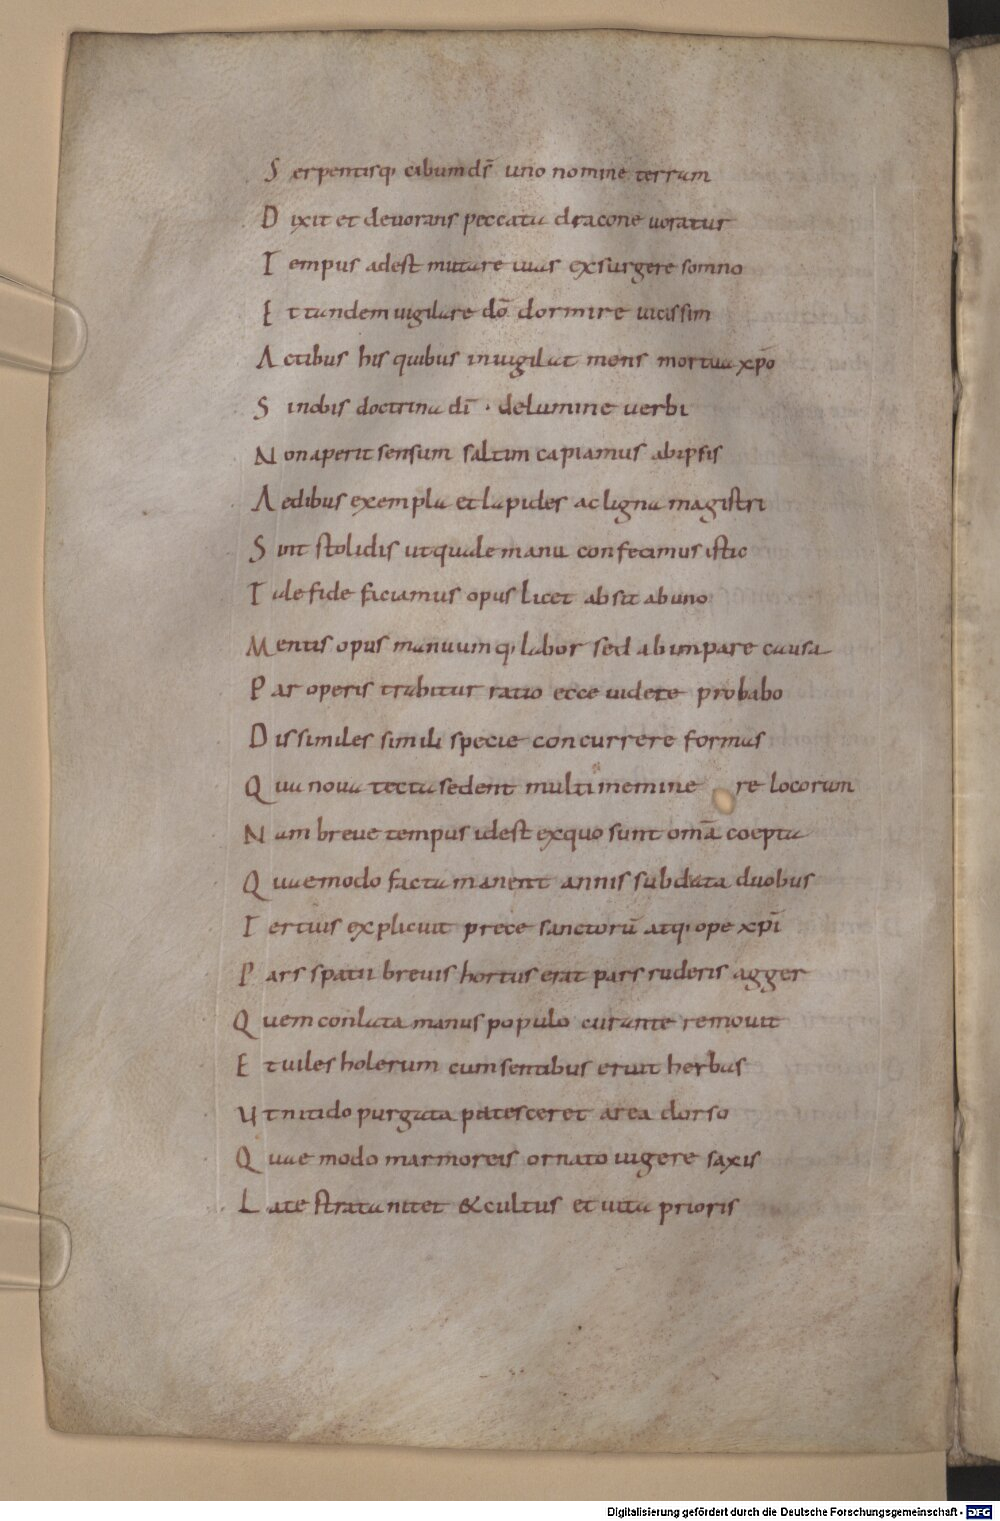 Serpentisq; cibum ds̄ uno nomine terram
Dixit et devorans peccata dracone voratur
Tempus adest mutare vias exsurgere somno
Et tandem vigilare dō dormire vicissim
Actibus his quibus invigilat mens mortua xp̄o
Si nobis doctrina dī · de lumine verbi
Non aperit sensum saltim capiamus ab ipsis
Aedibus exempla et lapides ac ligna magistri
Sint stolidis ut quale manu confecimus istic
Tale fide faciamus opus licet absit ab uno
Mentis opus manuumq; labor sed ab impare causa
Par operis trahitur ratio ecce videte probabo
Dissimiles simili specie concurrere formas
Qua nova tecta sedent multi memine re locorum
Nam breve tempus id est ex quo sunt omā coepta
Quae modo facta manent annis subdata duobus
Tertius explicuit prece sanctorū atq; ope xp̄i
Pars spatii brevis hortus erat pars ruderis agger
Quem conlata manus populo curante removit
Et viles holerum cum sentibus eruit herbas
Ut nitido purgata patesceret area dorso
Quae modo marmoreis ornato vigere saxis
Late strata nitet & cultus et vita prioris
Digitalisierung gefördert durch die Deutsche Forschungsgemeinschaft - DFG